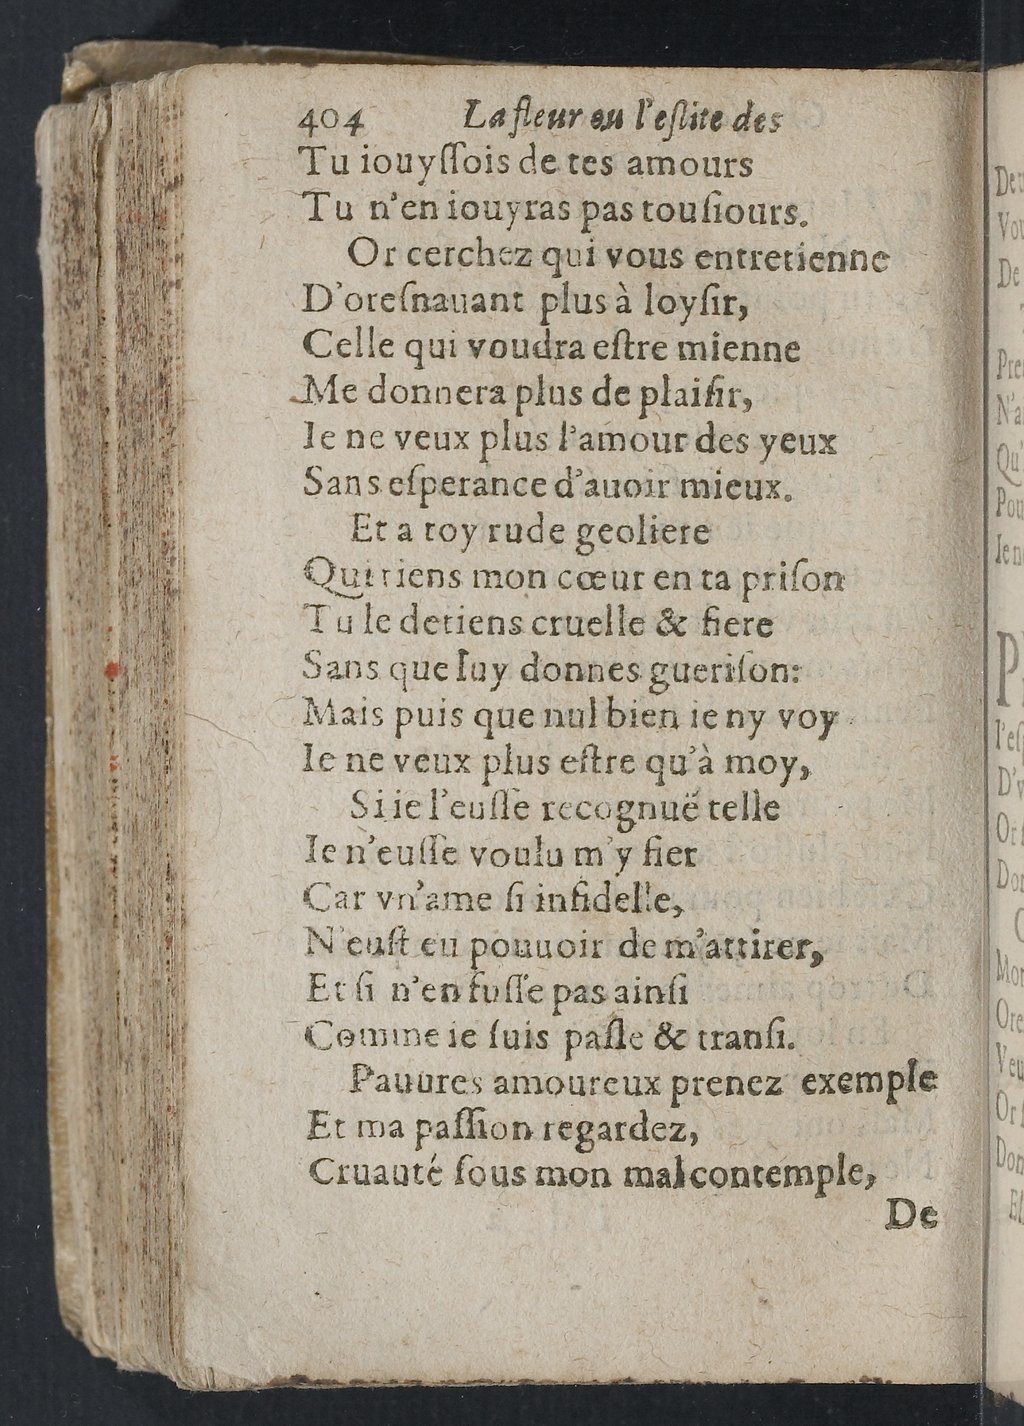 404 La fleur ou l'eſlite des
Tu iouyſſois de tes amours
Tu n'en iouyras pas touſiours.
Or cerchez qui vous entretienne
D'oreſnauant plus à loyſir,
Celle qui voudra eſtre mienne
Me donnera plus de plaiſir,
Ie ne veux plus l'amour des yeux
Sans eſperance d'auoir mieux.
Et a toy rude geoliere
Qui tiens mon cœur en ta priſon
Tu le detiens cruelle & fiere
Sans que luy donnes gueriſon:
Mais puis que nul bien ie ny voy
Ie ne veux plus eſtre qu'à moy,
Si ie l'euſſe recognuë telle
Ie n'euſſe voulu m'y fier
Car vn'ame ſi infidelle,
N'euſt eu pouuoir de m'attirer,
Et ſi n'en fuſſe pas ainſi
Comme ie ſuis paſle & tranſi.
Pauures amoureux prenez exemple
Et ma paſſion regardez,
Cruauté ſous mon mal contemple,
De